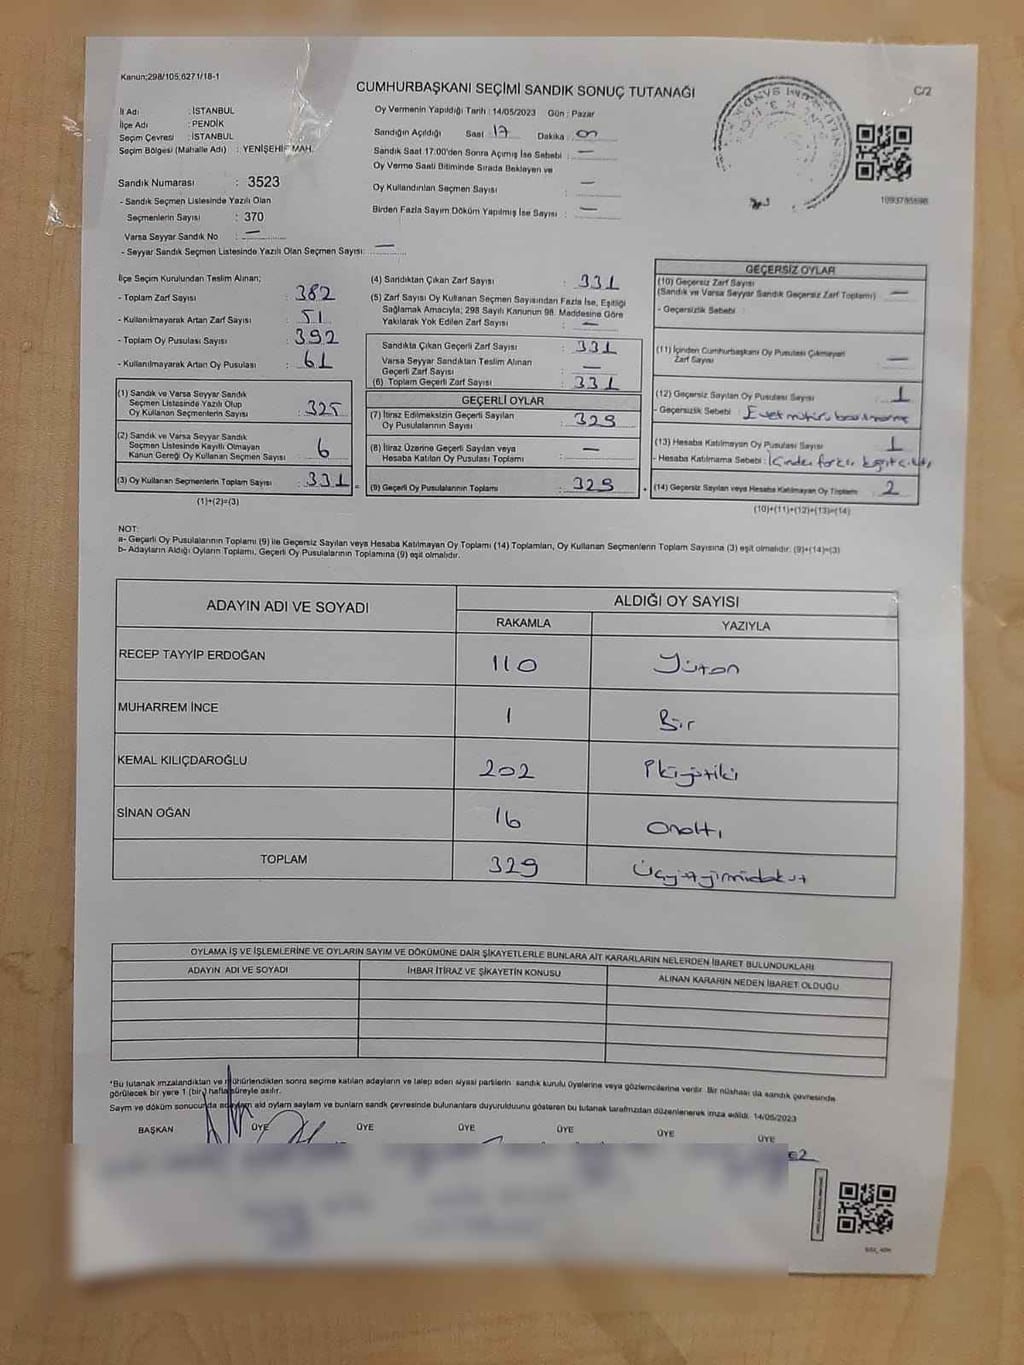 Kanun;298/105,6271/18-1
CUMHURBAŞKANI SEÇİMİ SANDIK SONUÇ TUTANAĞI
C/2
İl Adı : İSTANBUL
İlçe Adı : PENDİK
Seçim Çevresi : İSTANBUL
Seçim Bölgesi (Mahalle Adı) : YENİŞEHİR MAH.
Sandık Numarası : 3523
- Sandık Seçmen Listesinde Yazılı Olan
Seçmenlerin Sayısı : 370
Varsa Seyyar Sandık No : —
- Seyyar Sandık Seçmen Listesinde Yazılı Olan Seçmen Sayısı: —
Oy Vermenin Yapıldığı Tarih : 14/05/2023 Gün : Pazar
Sandığın Açıldığı Saat 17 Dakika
Sandık Saat 17:00'den Sonra Açımış İse Sebebi : —
Oy Verme Saati Bitiminde Sırada Bekleyen ve
Oy Kullandırılan Seçmen Sayısı : —
Birden Fazla Sayım Döküm Yapılmış İse Sayısı : —
İlçe Seçim Kurulundan Teslim Alınan;
- Toplam Zarf Sayısı : 382
- Kullanılmayarak Artan Zarf Sayısı : 51
- Toplam Oy Pusulası Sayısı : 392
- Kullanılmayarak Artan Oy Pusulası : 61
(1) Sandık ve Varsa Seyyar Sandık
Seçmen Listesinde Yazılı Olup
Oy Kullanan Seçmenlerin Sayısı : 325
(2) Sandık ve Varsa Seyyar Sandık
Seçmen Listesinde Kayıtlı Olmayan
Kanun Gereği Oy Kullanan Seçmen Sayısı : 6
(3) Oy Kullanan Seçmenlerin Toplam Sayısı : 331
(1)+(2)=(3)
(4) Sandıktan Çıkan Zarf Sayısı : 331
(5) Zarf Sayısı Oy Kullanan Seçmen Sayısından Fazla İse, Eşitliği
Sağlamak Amacıyla; 298 Sayılı Kanunun 98. Maddesine Göre
Yakılarak Yok Edilen Zarf Sayısı : —
Sandıkta Çıkan Geçerli Zarf Sayısı : 331
Varsa Seyyar Sandıktan Teslim Alınan
Geçerli Zarf Sayısı : —
(6) Toplam Geçerli Zarf Sayısı : 331
GEÇERLİ OYLAR
(7) İtiraz Edilmeksizin Geçerli Sayılan
Oy Pusulalarının Sayısı : 329
(8) İtiraz Üzerine Geçerli Sayılan veya
Hesaba Katılan Oy Pusulası Toplamı : —
(9) Geçerli Oy Pusulalarının Toplamı : 329
1093795898
GEÇERSİZ OYLAR
(10) Geçersiz Zarf Sayısı
(Sandık ve Varsa Seyyar Sandık Geçersiz Zarf Toplamı) : —
- Geçersizlik Sebebi :
(11) İçinden Cumhurbaşkanı Oy Pusulası Çıkmayan
Zarf Sayısı : —
(12) Geçersiz Sayılan Oy Pusulası Sayısı : 1
- Geçersizlik Sebebi : Evet mührü basılmamış
(13) Hesaba Katılmayan Oy Pusulası Sayısı : 1
- Hesaba Katılmama Sebebi : İçinden farklı kağıt çıktı
(14) Geçersiz Sayılan veya Hesaba Katılmayan Oy Toplamı : 2
(10)+(11)+(12)+(13)=(14)
NOT:
a- Geçerli Oy Pusulalarının Toplamı (9) ile Geçersiz Sayılan veya Hesaba Katılmayan Oy Toplamı (14) Toplamları, Oy Kullanan Seçmenlerin Toplam Sayısına (3) eşit olmalıdır. (9)+(14)=(3)
b- Adayların Aldığı Oyların Toplamı, Geçerli Oy Pusulalarının Toplamına (9) eşit olmalıdır.
ADAYIN ADI VE SOYADI ALDIĞI OY SAYISI
RAKAMLA YAZIYLA
RECEP TAYYİP ERDOĞAN 110 Yüzon
MUHARREM İNCE 1 Bir
KEMAL KILIÇDAROĞLU 202 İkiyüziki
SİNAN OĞAN 16 Onaltı
TOPLAM 329 Üçyüzyirmidokuz
OYLAMA İŞ VE İŞLEMLERİNE VE OYLARIN SAYIM VE DÖKÜMÜNE DAİR ŞİKAYETLERLE BUNLARA AİT KARARLARIN NELERDEN İBARET BULUNDUKLARI
ADAYIN ADI VE SOYADI İHBAR İTİRAZ VE ŞİKAYETİN KONUSU ALINAN KARARIN NEDEN İBARET OLDUĞU
*Bu tutanak imzalandıktan ve mühürlendikten sonra seçime katılan adayların ve talep eden siyasi partilerin sandık kurulu üyelerine veya gözlemcilerine verilir. Bir nüshası da sandık çevresinde
görülecek bir yere 1 (bir) hafta süreyle asılır.
Sayım ve döküm sonucunda adayların ald oyların sayları ve bunların sandk çevresinde bulunanlara duyurulduunu gösteren bu tutanak tarafmızdan düzenlenerek imza edildi. 14/05/2023
BAŞKAN ÜYE ÜYE ÜYE ÜYE ÜYE ÜYE